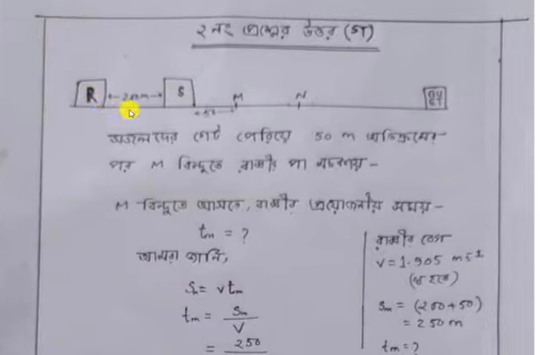 ২ নং প্রশ্নের উত্তর (গ)
R 200m S 50 M N
গেট পেরিয়ে 50 m অতিক্রমের
পর M বিন্দুতে রাব্বীর পা
M বিন্দুতে আসতে, রাব্বীর প্রয়োজনীয় সময় -
tₘ = ?
আমরা জানি,
Sₘ = vtₘ
tₘ = Sₘ / V
= 250
রাব্বীর বেগ
V = 1.905 ms⁻¹
Sₘ = (200+50)
= 250 m
tₘ = ?